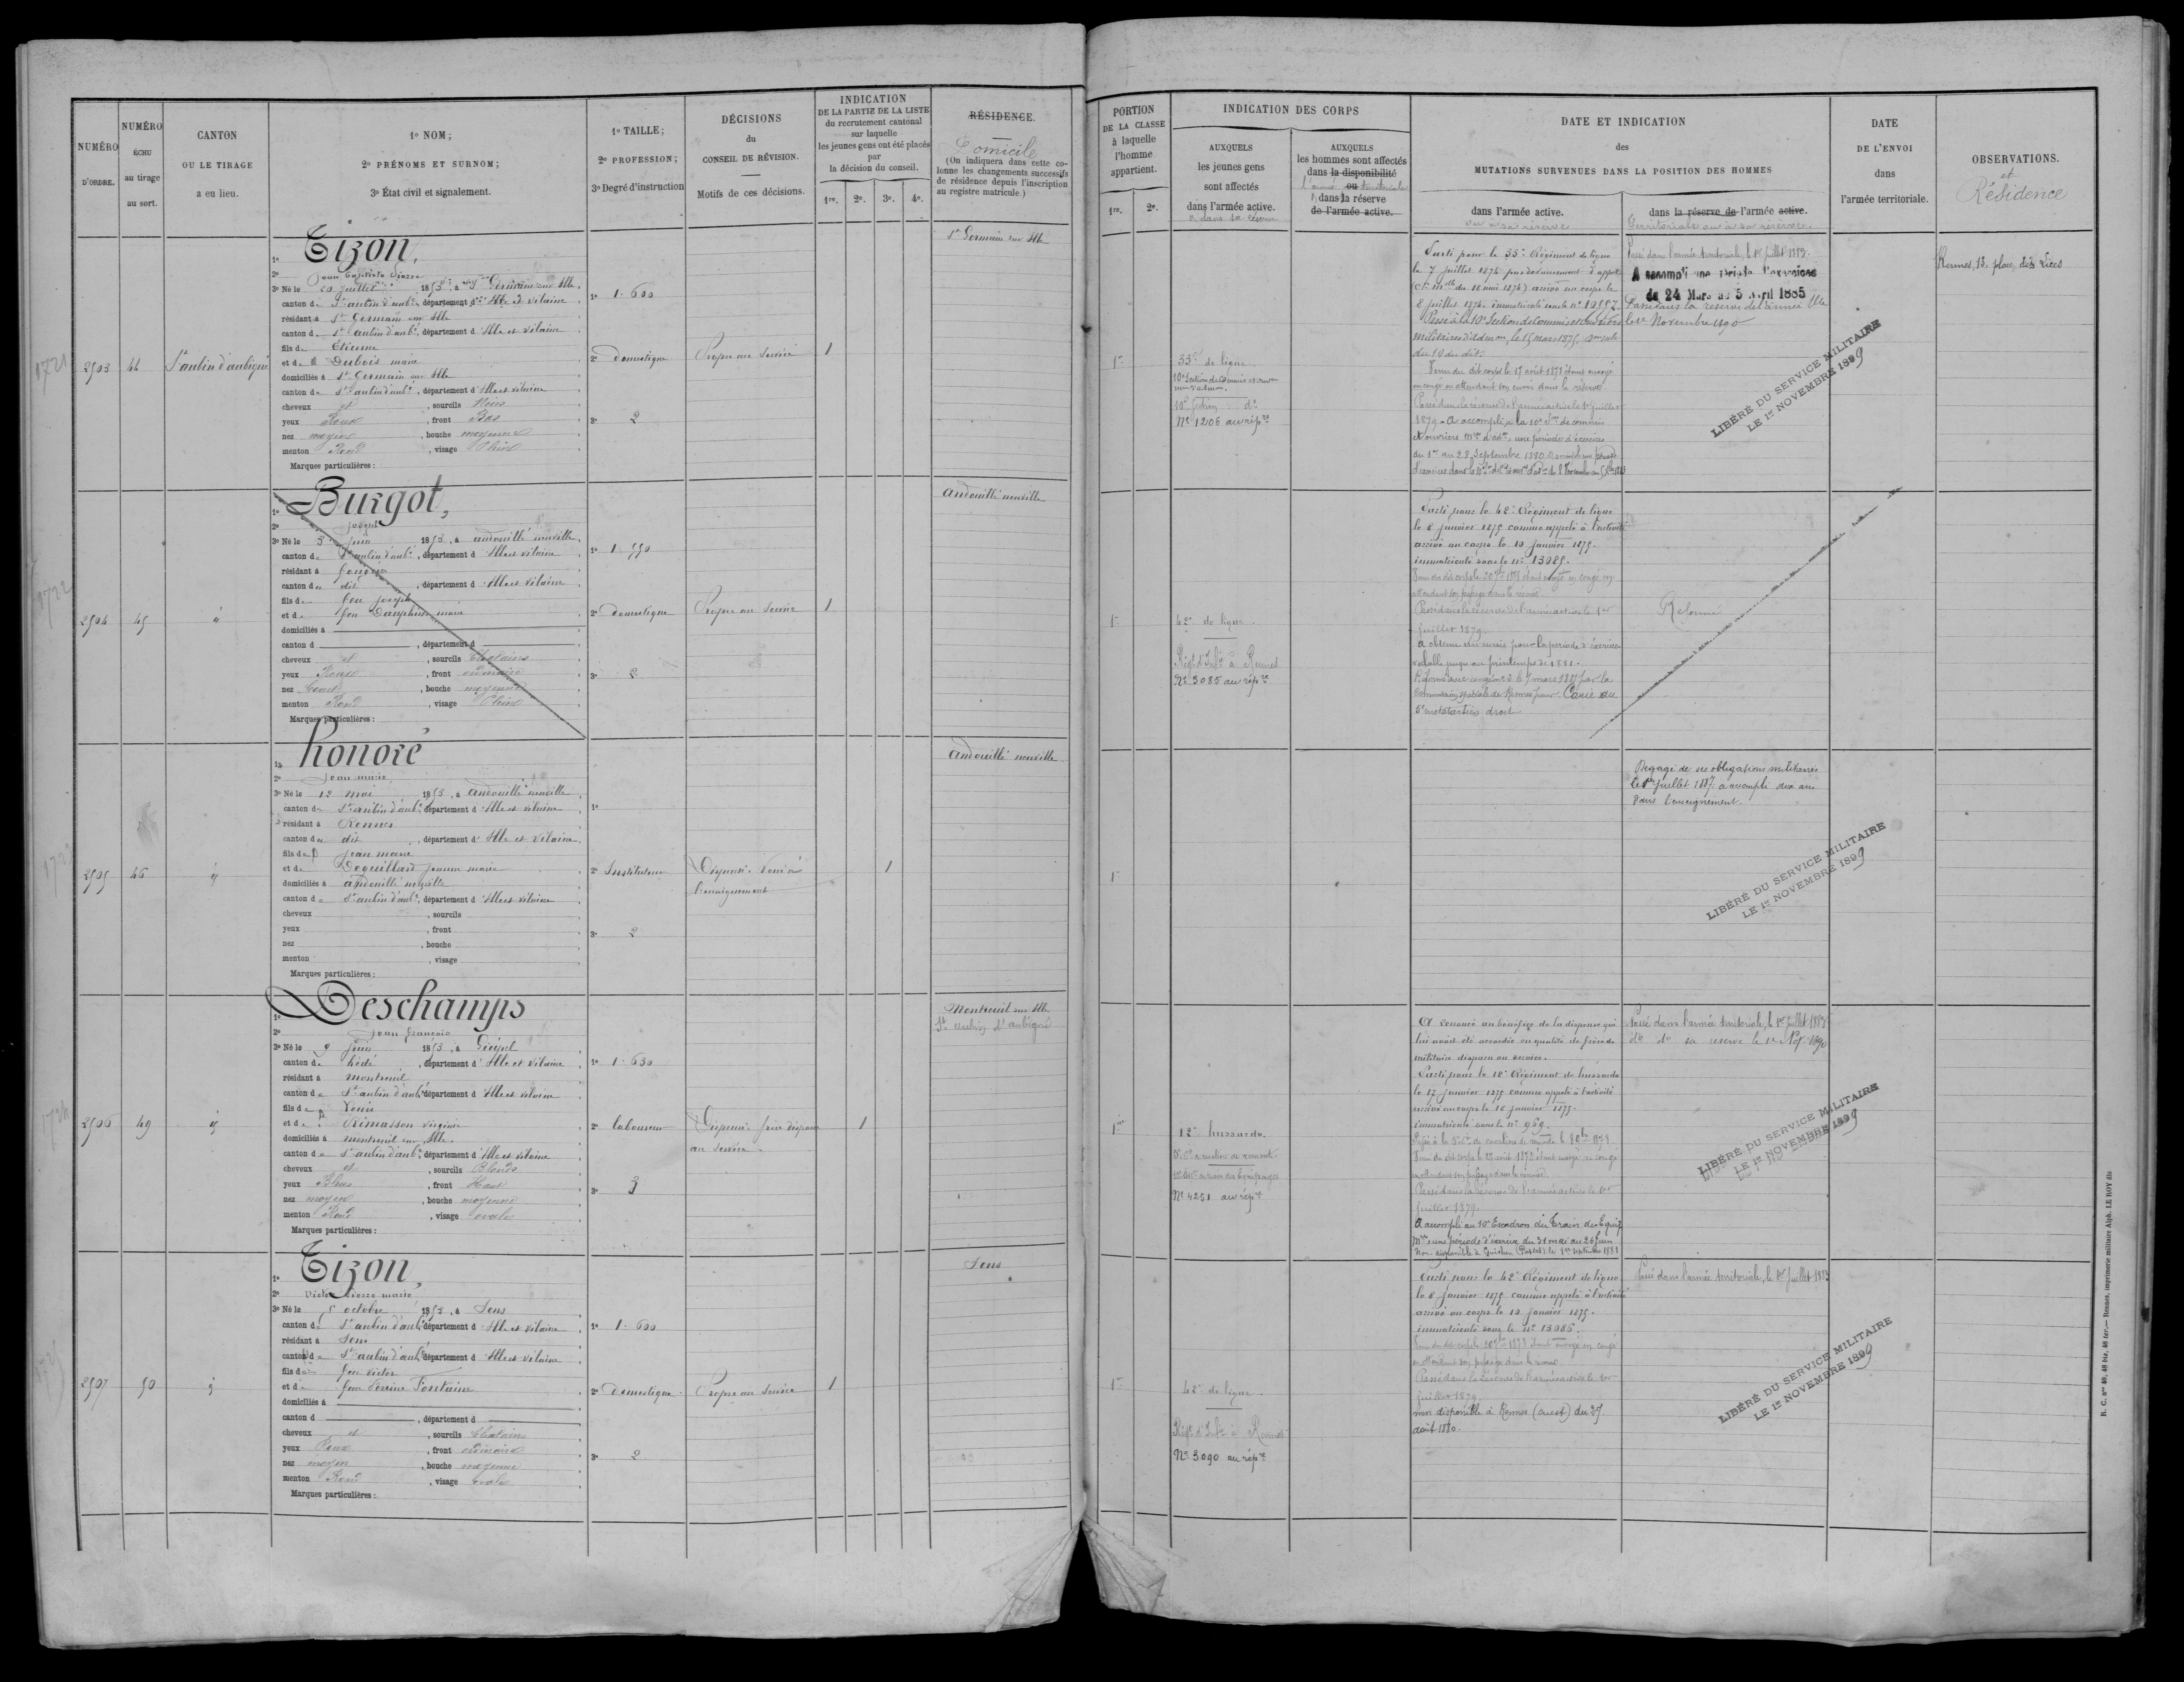 NUMÉRO
D'ORDRE.
NUMÉRO
ÉCHU
au tirage
au sort.
CANTON
OU LE TIRAGE
a eu lieu.
1º NOM;
2º PRÉNOMS ET SURNOM;
3º État civil et signalement.
1º TAILLE;
2º PROFESSION;
3º Degré d'instruction
DÉCISIONS
du
CONSEIL DE RÉVISION.
Motifs de ces décisions.
INDICATION
DE LA PARTIE DE LA LISTE
du recrutement cantonal
sur laquelle
les jeunes gens ont été placés
par
la décision du conseil.
1re. 2e. 3e. 4e.
RÉSIDENCE.
Domicile
(On indiquera dans cette co-
lonne les changements successifs
de résidence depuis l'inscription
au registre matricule.)
1721
2503 44 St aubin d'aubigné
1º Tizon,
2º Jean Baptiste Pierre
3º Né le 20 juillet 1853, à St Germain sur Ille
canton de St aubin d'aubé, département d'Ille & Vilaine
résidant à St Germain sur Ille
canton de St aubin d'aubé, département d'Ille et Vilaine
fils de Etienne
et de Dubois marie
domiciliés à St Germain sur Ille
canton de St aubin d'aubé, département d'Ille et Vilaine
cheveux et , sourcils Noirs
yeux Roux , front Bas
nez moyen , bouche moyenne
menton Rond , visage Plein
Marques particulières :
1º 1.600
2º domestique
3º 2
Propre au Service
1
St Germain sur Ille
1722
2504 45 d
1º Burgot,
2º joseph
3º Né le 3 juin 1853, à andouillé neuville
canton de St aubin d'aubé, département d'Ille et vilaine
résidant à fougères
canton de dit , département d'Ille et Vilaine
fils de feu joseph
et de feu Dauphin marie
domiciliés à
canton d , département d
cheveux et , sourcils Chatains
yeux Roux , front ordinaire
nez Court , bouche moyenne
menton Rond , visage Plein
Marques particulières :
1º 1.550
2º domestique
3º 2
Propre au Service
1
andouillé neuville
2505 46 d
1º honoré
2º jean marie
3º Né le 12 mai 1853, à andouillé neuville
canton de St aubin d'aubé, département d'Ille et vilaine
résidant à Rennes
canton de dit , département d'Ille et Vilaine
fils de jean marie
et de Deguillard jeanne marie
domiciliés à andouillé neuville
canton de St aubin d'aubé, département d'Ille et vilaine
cheveux , sourcils
yeux , front
nez , bouche
menton , visage
Marques particulières :
1º
2º Instituteur
3º 2
Dispensé. Voué à
l'enseignement
1
andouillé neuville
1724
2506 49 d
1º Deschamps
2º jean françois
3º Né le 9 juin 1853, à Guipel
canton de hédé , département d'Ille et Vilaine
résidant à montreuil
canton de St aubin d'aubé, département d'Ille et vilaine
fils de Louis
et de Crimasson virginie
domiciliés à montreuil sur Ille
canton de St aubin d'aubé, département d'Ille et vilaine
cheveux et , sourcils Blonds
yeux Bleus , front Haut
nez moyen , bouche moyenne
menton Rond , visage ovale
Marques particulières :
1º 1.630
2º laboureur
3º 3
Dispensé frère disparu
au service.
1
Montreuil sur Ille
St aubin d'aubigné
2507 50 d
1º Tizon,
2º Victor Pierre marie
3º Né le 5 octobre 1853, à Sens
canton de St aubin d'aubé, département d'Ille et vilaine
résidant à Sens
canton de St aubin d'aubé, département d'Ille et vilaine
fils de feu victor
et de feue Perrine Fontaine
domiciliés à
canton d , département d
cheveux et , sourcils Chatains
yeux Roux , front ordinaire
nez moyen , bouche moyenne
menton Rond , visage ovale
Marques particulières :
1º 1.600
2º domestique
3º 2
Propre au Service
1
Sens
PORTION
DE LA CLASSE
à laquelle
l'homme
appartient.
1re. 2e.
INDICATION DES CORPS
AUXQUELS
les jeunes gens
sont affectés
dans l'armée active.
ou dans sa réserve
AUXQUELS
les hommes sont affectés
dans la disponibilité
ou
l'armée territoriale
dans la réserve
de l'armée active.
DATE ET INDICATION
des
MUTATIONS SURVENUES DANS LA POSITION DES HOMMES
dans l'armée active.
ou sa réserve
dans la réserve de l'armée active.
Territoriale ou sa réserve.
DATE
DE L'ENVOI
dans
l'armée territoriale.
OBSERVATIONS.
et
Résidence
1re
33e de ligne
10e Section de Commis et ouvriers
10e Section do
Nº 1206 au répre
Parti pour le 33e Régiment de ligne
le 7 juillet 1874 pour devancement d'appel
arrivé au corps le
8 juillet 1874. immatriculé sous le nº 10557.
Passé à la 10e Section de Commis et ouvriers
militaires d'admon, le 15 mars 1875,
du 10 du dit.
Venu du dit corps le 17 août 1878 étant envoyé
en congé en attendant son envoi dans la réserve
Passé dans la réserve de l'armée active le 1er juillet
1879. A accompli à la 10e Son de commis
et ouvriers mres d'adon, une période d'exercices
du 1er au 28 Septembre 1880.
Passé dans l'armée territoriale, le 1er juillet 1883.
A accompli une période d'exercices
du 24 Mars au 5 avril 1885
Passé dans la réserve de l'armée tlle
le 1er Novembre 1890
LIBÉRÉ DU SERVICE MILITAIRE
LE 1er NOVEMBRE 1899
Rennes, 13, place des Lices
1re
42e de ligne.
Régt d'Infie à Rennes
Nº 3085 au répre
Parti pour le 42e Régiment de ligne
le 8 janvier 1875 comme appelé à l'activité
arrivé au corps le 10 janvier 1875.
immatriculé sous le nº 13085.
attendant son passage dans la réserve
Passé dans la réserve de l'armée active le 1er
juillet 1879.
a obtenu un sursis pour la période d'exercices
valable jusqu'au printemps de 1881.
Réformé avec congé nº 2 le 7 mars 1881 par la
Commission spéciale de Rennes pour Carie du
5e métatarsien droit
Réformé
1re
Dégagé de ses obligations militaires
le 1er juillet 1887. a accompli dix ans
dans l'enseignement.
LIBÉRÉ DU SERVICE MILITAIRE
LE 1er NOVEMBRE 1899
1re
12e hussards.
Nº 4251 au répre
A renoncé au bénéfice de la dispense qui
lui avait été accordée en qualité de frère de
militaire disparu au service.
Parti pour le 12e Régiment de hussards
le 17 janvier 1875 comme appelé à l'activité
arrivé au corps le 18 janvier 1875.
immatriculé sous le nº 969.
Venu du dit corps le 17 août 1878 étant envoyé en congé
en attendant son passage dans la réserve
Passé dans la réserve de l'armée active le 1er
juillet 1879.
A accompli au 10e Escadron du Train des Equip.
mres une période d'exercices du 31 mai au 26 Juin
Non disponible à Guichen (Postes) le 1er septembre 1881
Passé dans l'armée territoriale, le 1er juillet 1883
do do sa réserve le 1er Nov. 1890
LIBÉRÉ DU SERVICE MILITAIRE
LE 1er NOVEMBRE 1899
1re
42e de ligne.
Régt d'Infie à Rennes
Nº 3090 au répre
Parti pour le 42e Régiment de ligne
le 8 janvier 1875 comme appelé à l'activité
arrivé au corps le 10 janvier 1875.
immatriculé sous le nº 13086.
en attendant son passage dans la réserve
Passé dans la réserve de l'armée active le 1er
juillet 1879.
non disponible à Rennes (ouest) du 25
août 1880.
Passé dans l'armée territoriale, le 1er juillet 1883
LIBÉRÉ DU SERVICE MILITAIRE
LE 1er NOVEMBRE 1899
R. C. nos 48, 48 bis, 48 ter.— Rennes, imprimerie militaire Alph. LE ROY fils